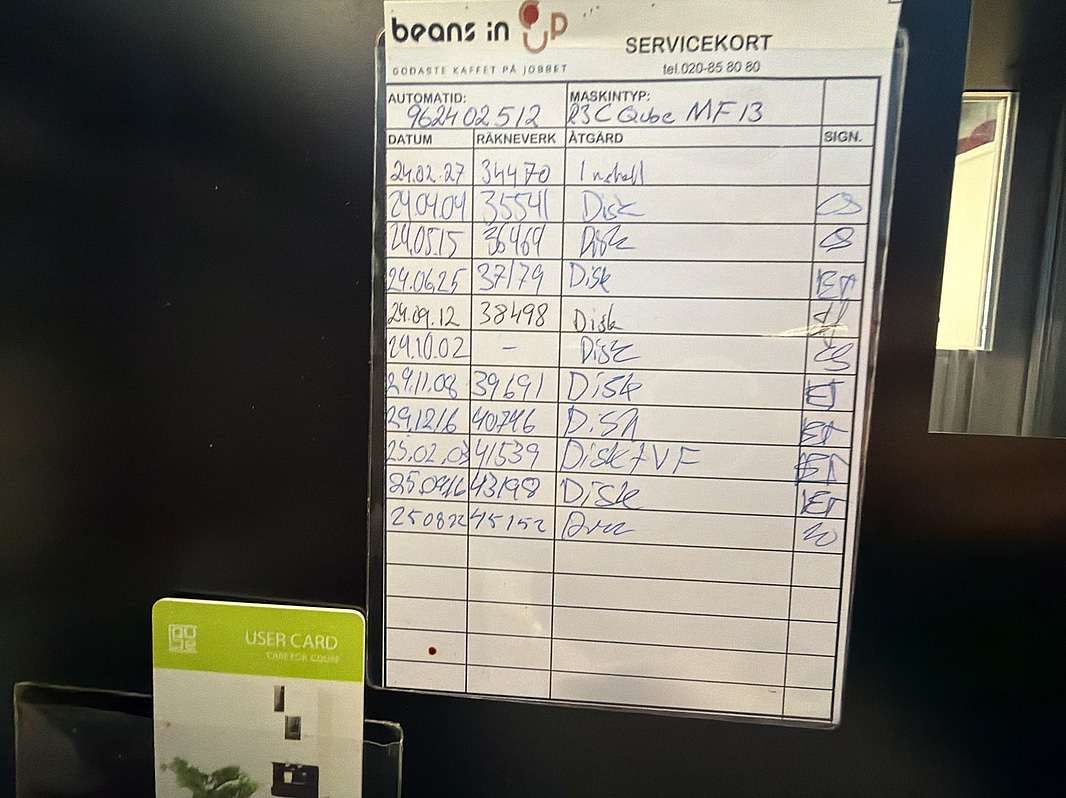 beans in up
SERVICEKORT
GODASTE KAFFET PÅ JOBBET
tel.020-85 80 80
AUTOMATID: MASKINTYP:
962402512 R3C Qube MF13
DATUM RÄKNEVERK ÅTGÄRD SIGN.
24.02.27 34470 Install
24.04.04 35541 Disk
24.05.15 36469 Disk
24.06.25 37179 Disk ET
24.09.12 38498 Disk
24.10.02 - Disk
24.11.08 39691 Disk ET
24.12.16 40746 Disk ET
25.02.03 41539 Disk+VF ET
25.04.16 43198 Disk ET
250822 45152
USER CARD
CARE FOR COUBE